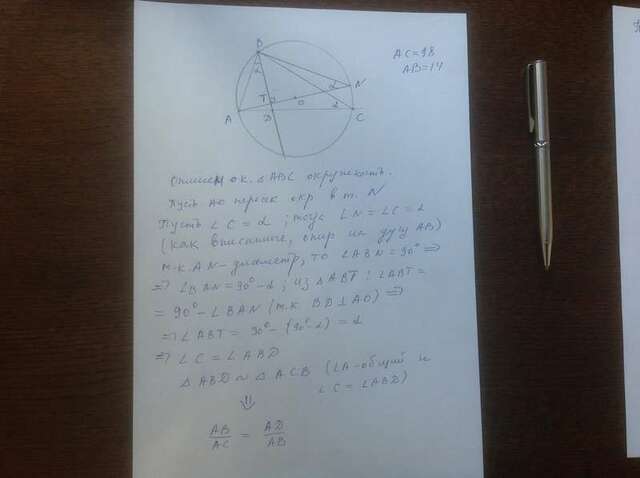 AC=98
AB=14
B
α
α
N
T
O
α
A
D
C
Опишем ок. △ABC окружность.
Пусть AO пересек окр в т. N
Пусть ∠C = α ; тогда ∠N = ∠C = α
(как вписанные, опир на дугу AB)
т.к. AN - диаметр, то ∠ABN = 90° ⇒
⇒ ∠BAN = 90° - α ; из △ABT : ∠ABT =
= 90° - ∠BAN (т.к. BD ⊥ AO) ⇒
⇒ ∠ABT = 90° - (90° - α) = α
⇒ ∠C = ∠ABD
△ABD ~ △ACB (∠A - общий и
∠C = ∠ABD)
⇓
AB/AC = AD/AB